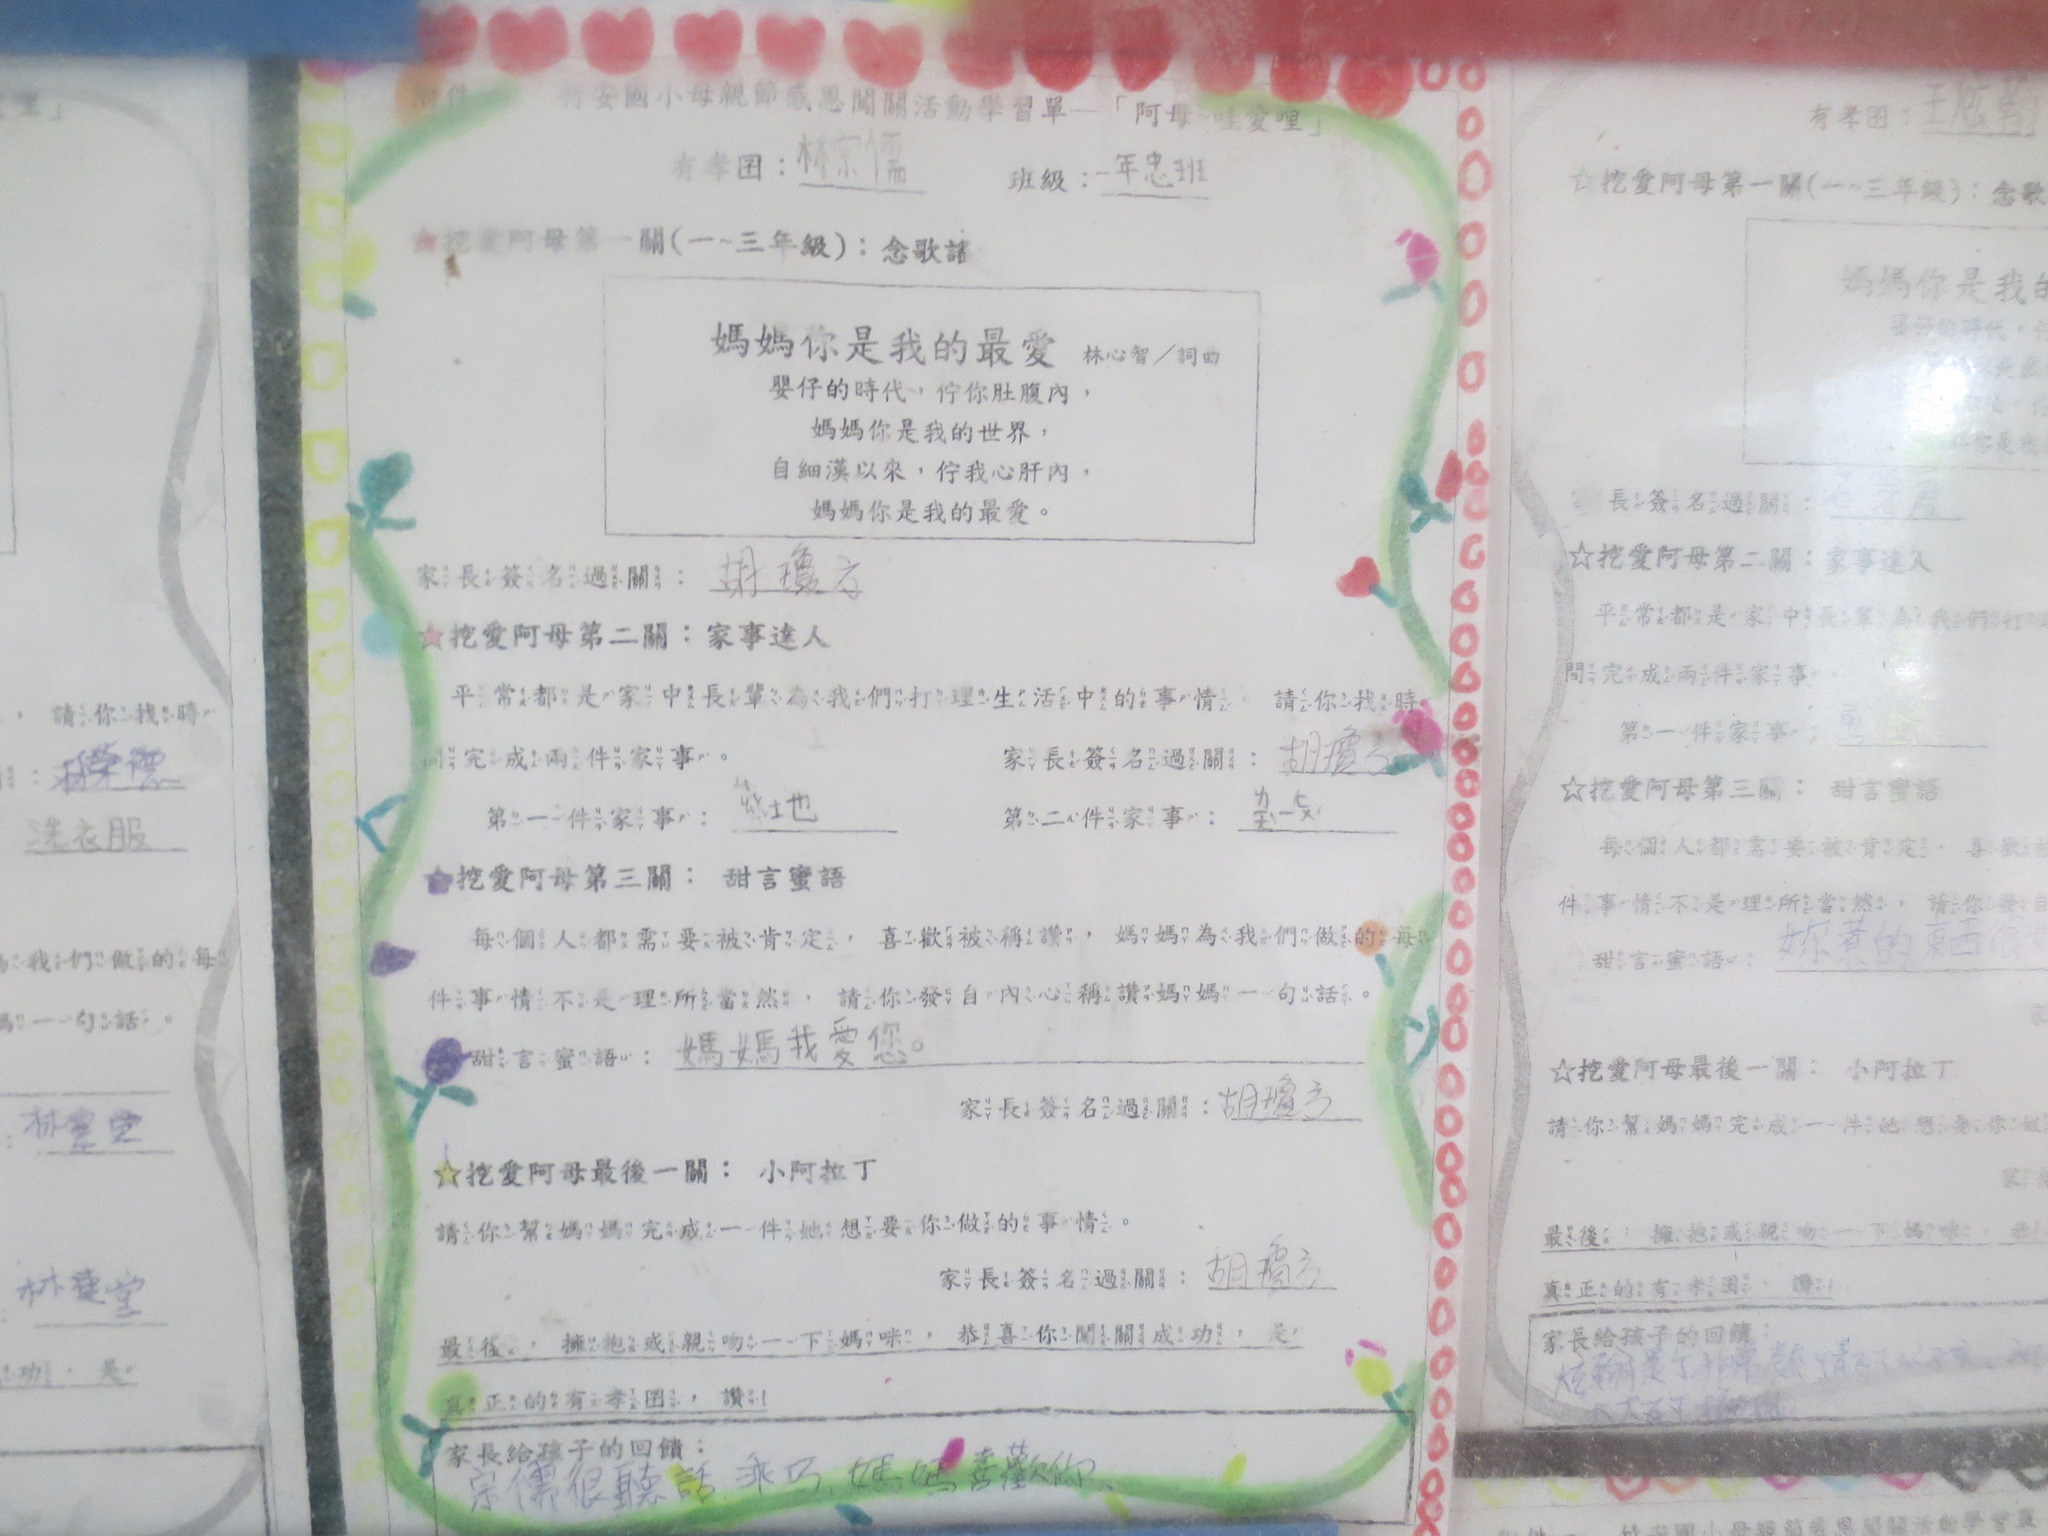 安國小母親節感恩闖關活動學習單—「阿母~哇愛哩」
有孝囝：林宗儒 班級：一年忠班
★挖愛阿母第一關(一~三年級)：念歌謠
媽媽你是我的最愛 林心智／詞曲
嬰仔的時代，佇你肚腹內，
媽媽你是我的世界，
自細漢以來，佇我心肝內，
媽媽你是我的最愛。
家長簽名過關：胡瓊
★挖愛阿母第二關：家事達人
平常都是家中長輩為我們打理生活中的事情，請你找時
間完成兩件家事。 家長簽名過關：胡瓊
第一件家事：地
第二件家事：
★挖愛阿母第三關：甜言蜜語
每個人都需要被肯定，喜歡被稱讚，媽媽為我們做的每
件事情不是理所當然，請你發自內心稱讚媽媽一句話。
甜言蜜語：媽媽我愛您。
家長簽名過關：胡瓊
☆挖愛阿母最後一關：小阿拉丁
請你幫媽媽完成一件她想要你做的事情。
家長簽名過關：胡瓊
最後，擁抱或親吻一下媽咪，恭喜你闖關成功，是
真正的有孝囝，讚！
家長給孩子的回饋：
宗儒很聽話，乖巧，媽媽喜歡你、
，請你找時
洗衣服
為我們做的每
媽一句話。
功，是
有孝囝：王
☆挖愛阿母第一關(一~三年級)：念歌
媽媽你是我的
家長簽名過關：
☆挖愛阿母第二關：家事達人
平常都是家中長輩為我們打
間完成兩件家事。
第一件家事：
☆挖愛阿母第三關：甜言蜜語
每個人都需要被肯定，喜歡
件事情不是理所當然，請你發自
甜言蜜語：妳煮的東西很
☆挖愛阿母最後一關：小阿拉丁
請你幫媽媽完成一件她想要你做
最後，擁抱或親吻一下媽咪，恭
真正的有孝囝，讚！
家長給孩子的回饋：